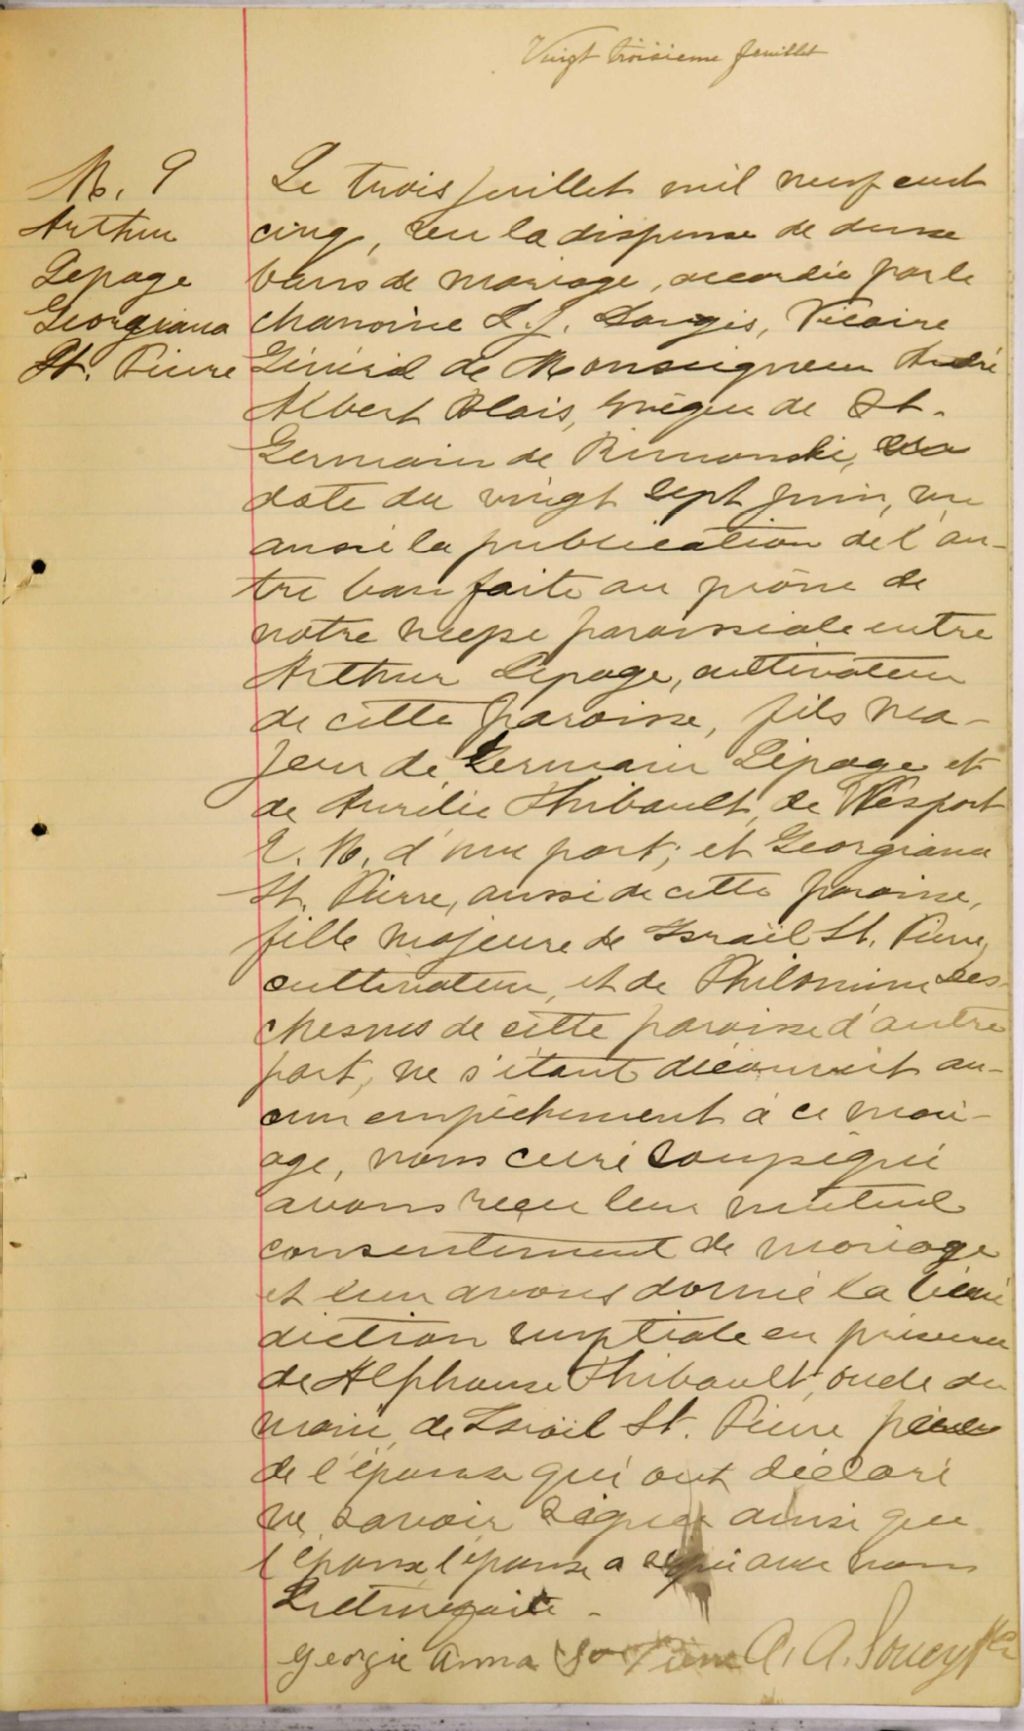 Vingt troisieme feuillet
M. 9
Arthur
Lepage
Georgiana
St. Pierre
Le trois Juillet mil neuf cent
cinq, vu la dispense de deux
bans de mariage, accordée par le
chanoine L. J. Langis, Vicaire
Général de Monseigneur André
Albert Blais, évêque de St.
Germain de Rimouski, en
date du vingt sept juin, vu
aussi la publication de l'au-
tre ban faite au prône de
notre messe paroissiale entre
Arthur Lepage, cultivateur
de cette paroisse, fils ma-
jeur de Germain Lepage et
de Aurélie Thibault, de Wesport
d'une part; et Georgiana
St. Pierre, aussi de cette paroisse,
fille majeure de Israël St. Pierre,
cultivateur, et de Philomène Des-
chesnes de cette paroisse d'autre
part, ne s'étant découvert au-
cun empêchement à ce mari-
age, nous curé soussigné
avons reçu leur mutuel
consentement de mariage
et leur avons donné la béné
diction nuptiale en présence
de Alphonse Thibault, oncle du
marié, de Israël St. Pierre père
de l'épouse qui ont déclaré
ne savoir signer ainsi que
l'époux l'épouse a signé avec nous
Lecture faite -
Georgie Anna St Pierre A. A. Soucy Ptr